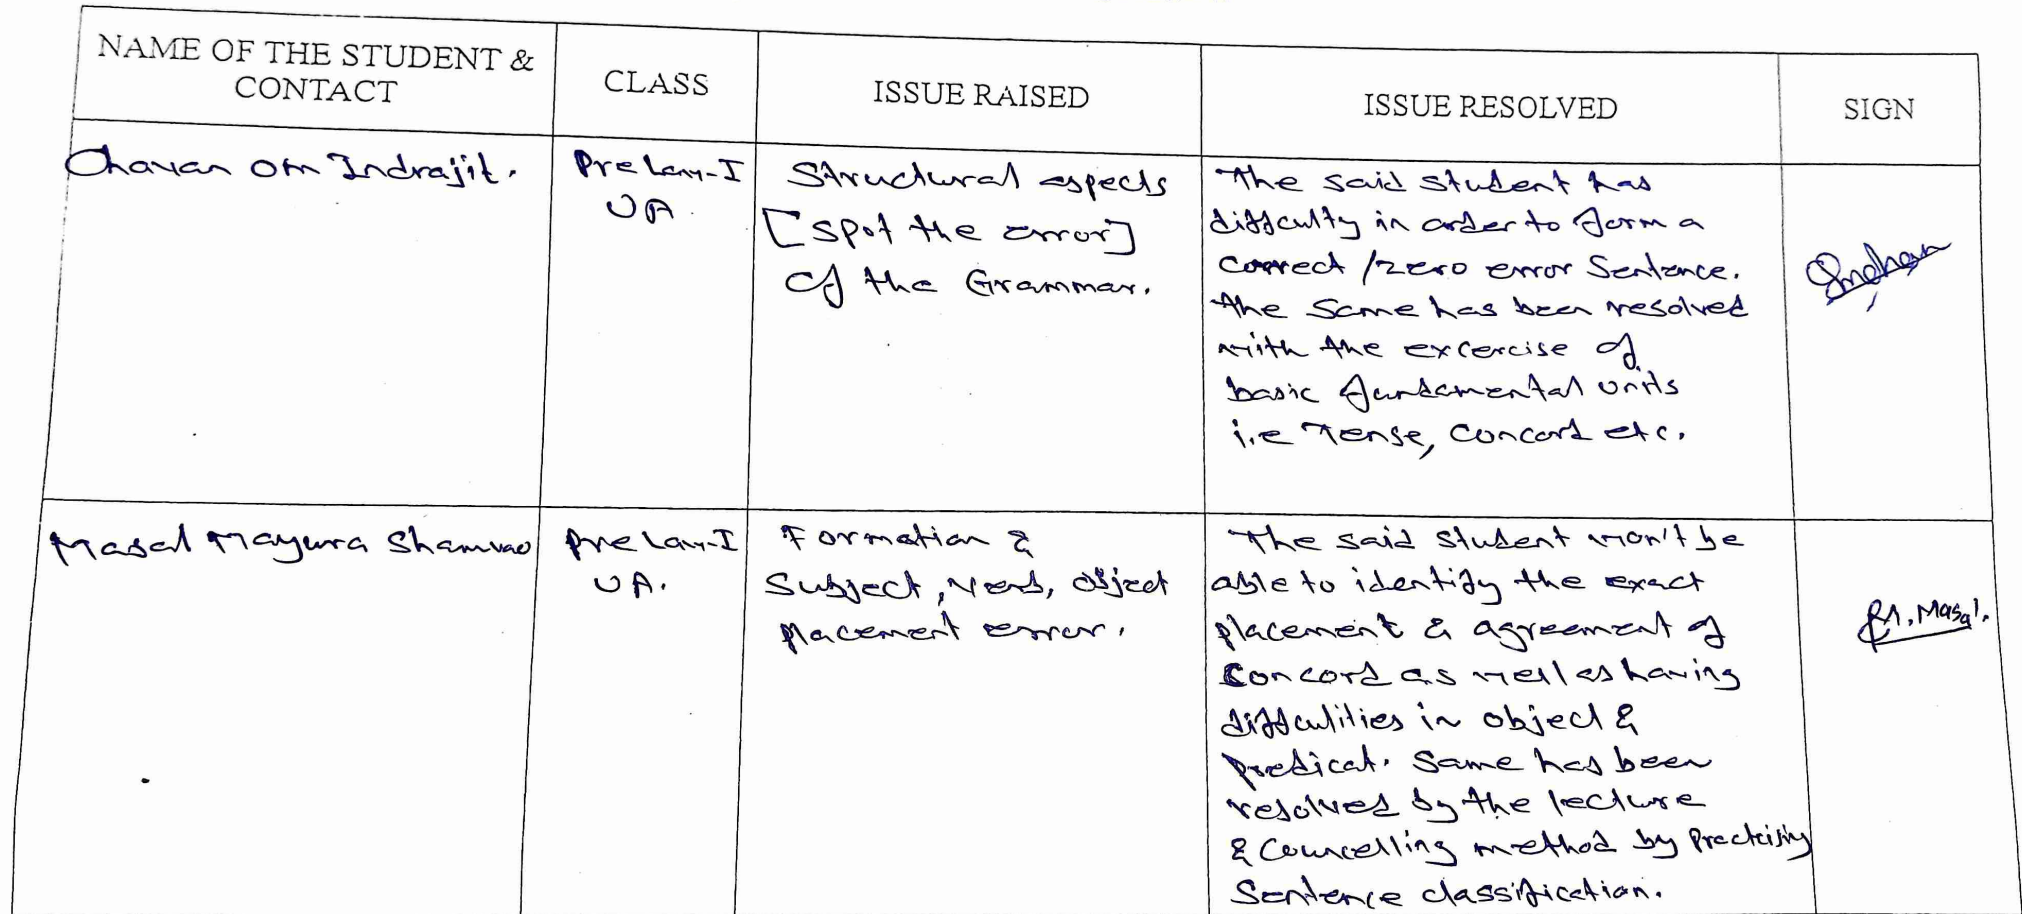 NAME OF THE STUDENT &
CONTACT
CLASS
ISSUE RAISED
ISSUE RESOLVED
SIGN
Chavan Om Indrajit.
Pre Law-I
UA.
Structural aspects
[spot the error]
of the Grammar.
The said student has
difficulty in order to form a
correct /zero error Sentence.
The same has been resolved
with the excercise of
basic fundamental units
i.e Tense, Concord etc.
Masal Mayura Shamrao
Pre Law-I
UA.
Formation &
Subject, Verb, object
placement error.
The said student won't be
able to identify the exact
placement & agreement of
Concord as well as having
difficulities in object &
predicat. Same has been
resolved by the lecture
& Councelling method by Practcising
Sentence classification.
M. Masal.